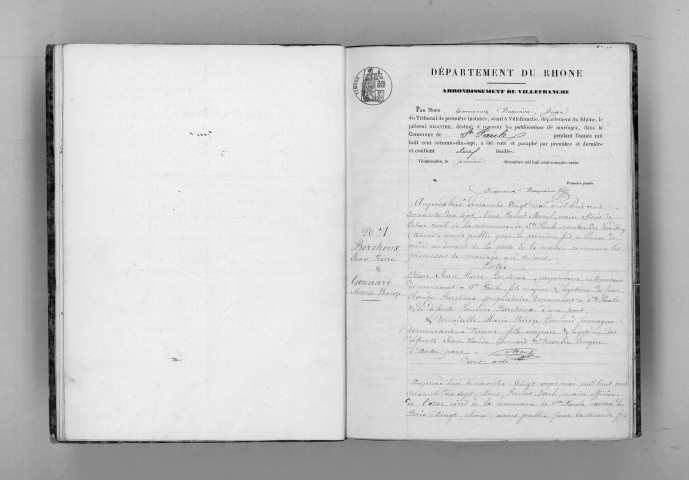 DÉPARTEMENT DU RHONE
ARRONDISSEMENT DE VILLEFRANCHE
PAR NOUS
du Tribunal de première instance, séant à Villefranche, département du Rhône, le
présent REGISTRE, destiné à recevoir les publications de mariages, dans la
Commune de Ste Paule pendant l'année mil
huit cent soixante-dix-sept, a été coté et paraphé par première et dernière
et contient neuf feuilles.
Villefranche, le décembre mil huit cent soixante-seize.
Première feuille.
N° 1
Berchoux
Jean Pierre
&
Gonnard
Marie Thérèze
Aujourd'hui dimanche vingt mai mil huit cent
soixante dix sept, Nous Benoit maire officier de
l'état civil de la commune de Ste Paule canton du
(Rhône) avons publié pour la première fois à l'heure de
midi au devant de la porte de la maison commune les
promesses de mariage qui suivent
Entre
Jean Pierre Berchoux, propriétaire cultivateur
demeurant à Ste Paule fils majeur & légitime de
Claude Berchoux, propriétaire demeurant à Ste Paule
& de défunte Berchoux d'une part
& demoiselle Marie Thérèze Gonnard
demeurant à fille majeure & légitime de
défunts Jean Claude Gonnard &
d'autre part.
Dont acte
Aujourd'hui dimanche vingt sept mai mil huit cent
soixante dix sept, Nous Benoit maire officier
de l'état civil de la commune de Ste Paule canton du
Rhône avons publié pour la seconde fois